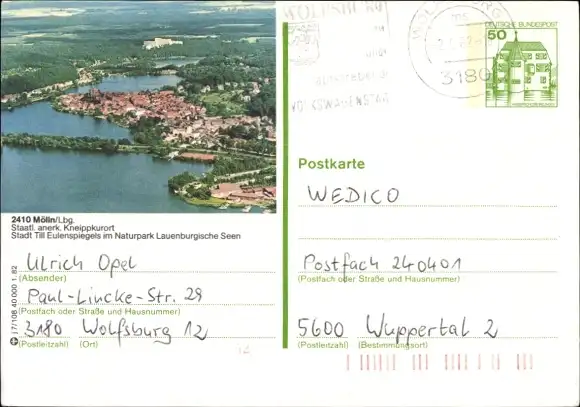 WOLFSBURG
3180
VOLKSWAGENSTADT
DEUTSCHE BUNDESPOST
50
Postkarte
WEDICO
2410 Mölln/Lbg.
Staatl. anerk. Kneippkurort
Stadt Till Eulenspiegels im Naturpark Lauenburgische Seen
Ulrich Opel
(Absender)
Paul-Lincke-Str. 29
(Postfach oder Straße und Hausnummer)
3180 Wolfsburg 12
(Postleitzahl) (Ort)
Postfach 240401
(Postfach oder Straße und Hausnummer)
5600 Wuppertal 2
(Postleitzahl) (Bestimmungsort)
17/108 40 000 1. 82